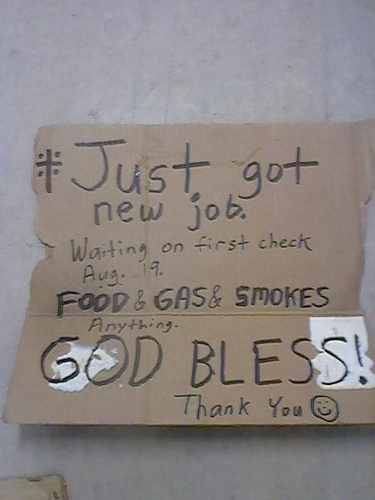 Just got
new job.
Waiting on first check
Aug. 19.
FOOD & GAS & SMOKES
Anything.
GOD BLESS!
Thank You ☺